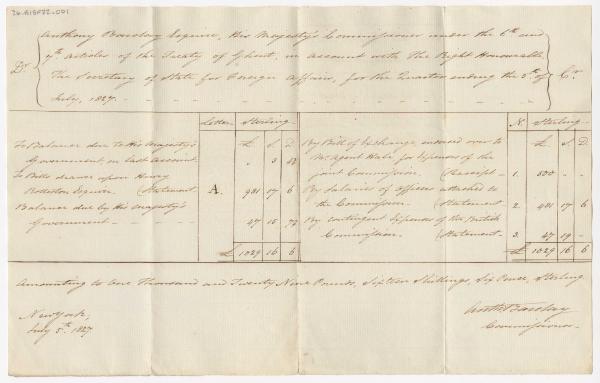 Anthony Barclay Esquire, His Majesty's Commissioner under the 6th and
7th articles of the Treaty of Ghent, in account with The Right Honourable
Dr. The Secretary of State for Foreign Affairs, for the Quarter ending the 5th of Cr.
July, 1827.
Letter Sterling
£ S. D.
To Balance due to His Majesty's
Government on last account " 3
To Bills drawn upon Henry
Rolleston Esquire. (Statement A. 981 17 6
Balance due by His Majesty's
Government 47 15
£ 1029 16 6
N. Sterling
£ S. D.
By Bill of Exchange, endorsed over to
Mr Agent Hale for Expenses of the
joint Commission. (Receipt 1. 500 - -
By Salaries of officers attached to
the Commission. (Statement 2. 481 17 6
By contingent Expenses of the British
Commission. (Statement 3. 47 19 -
£ 1029 16 6
Amounting to One Thousand and Twenty Nine Pounds, Sixteen Shillings, Six Pence, Sterling
New York,
July 5th 1827.
Anth Barclay
Commissioner